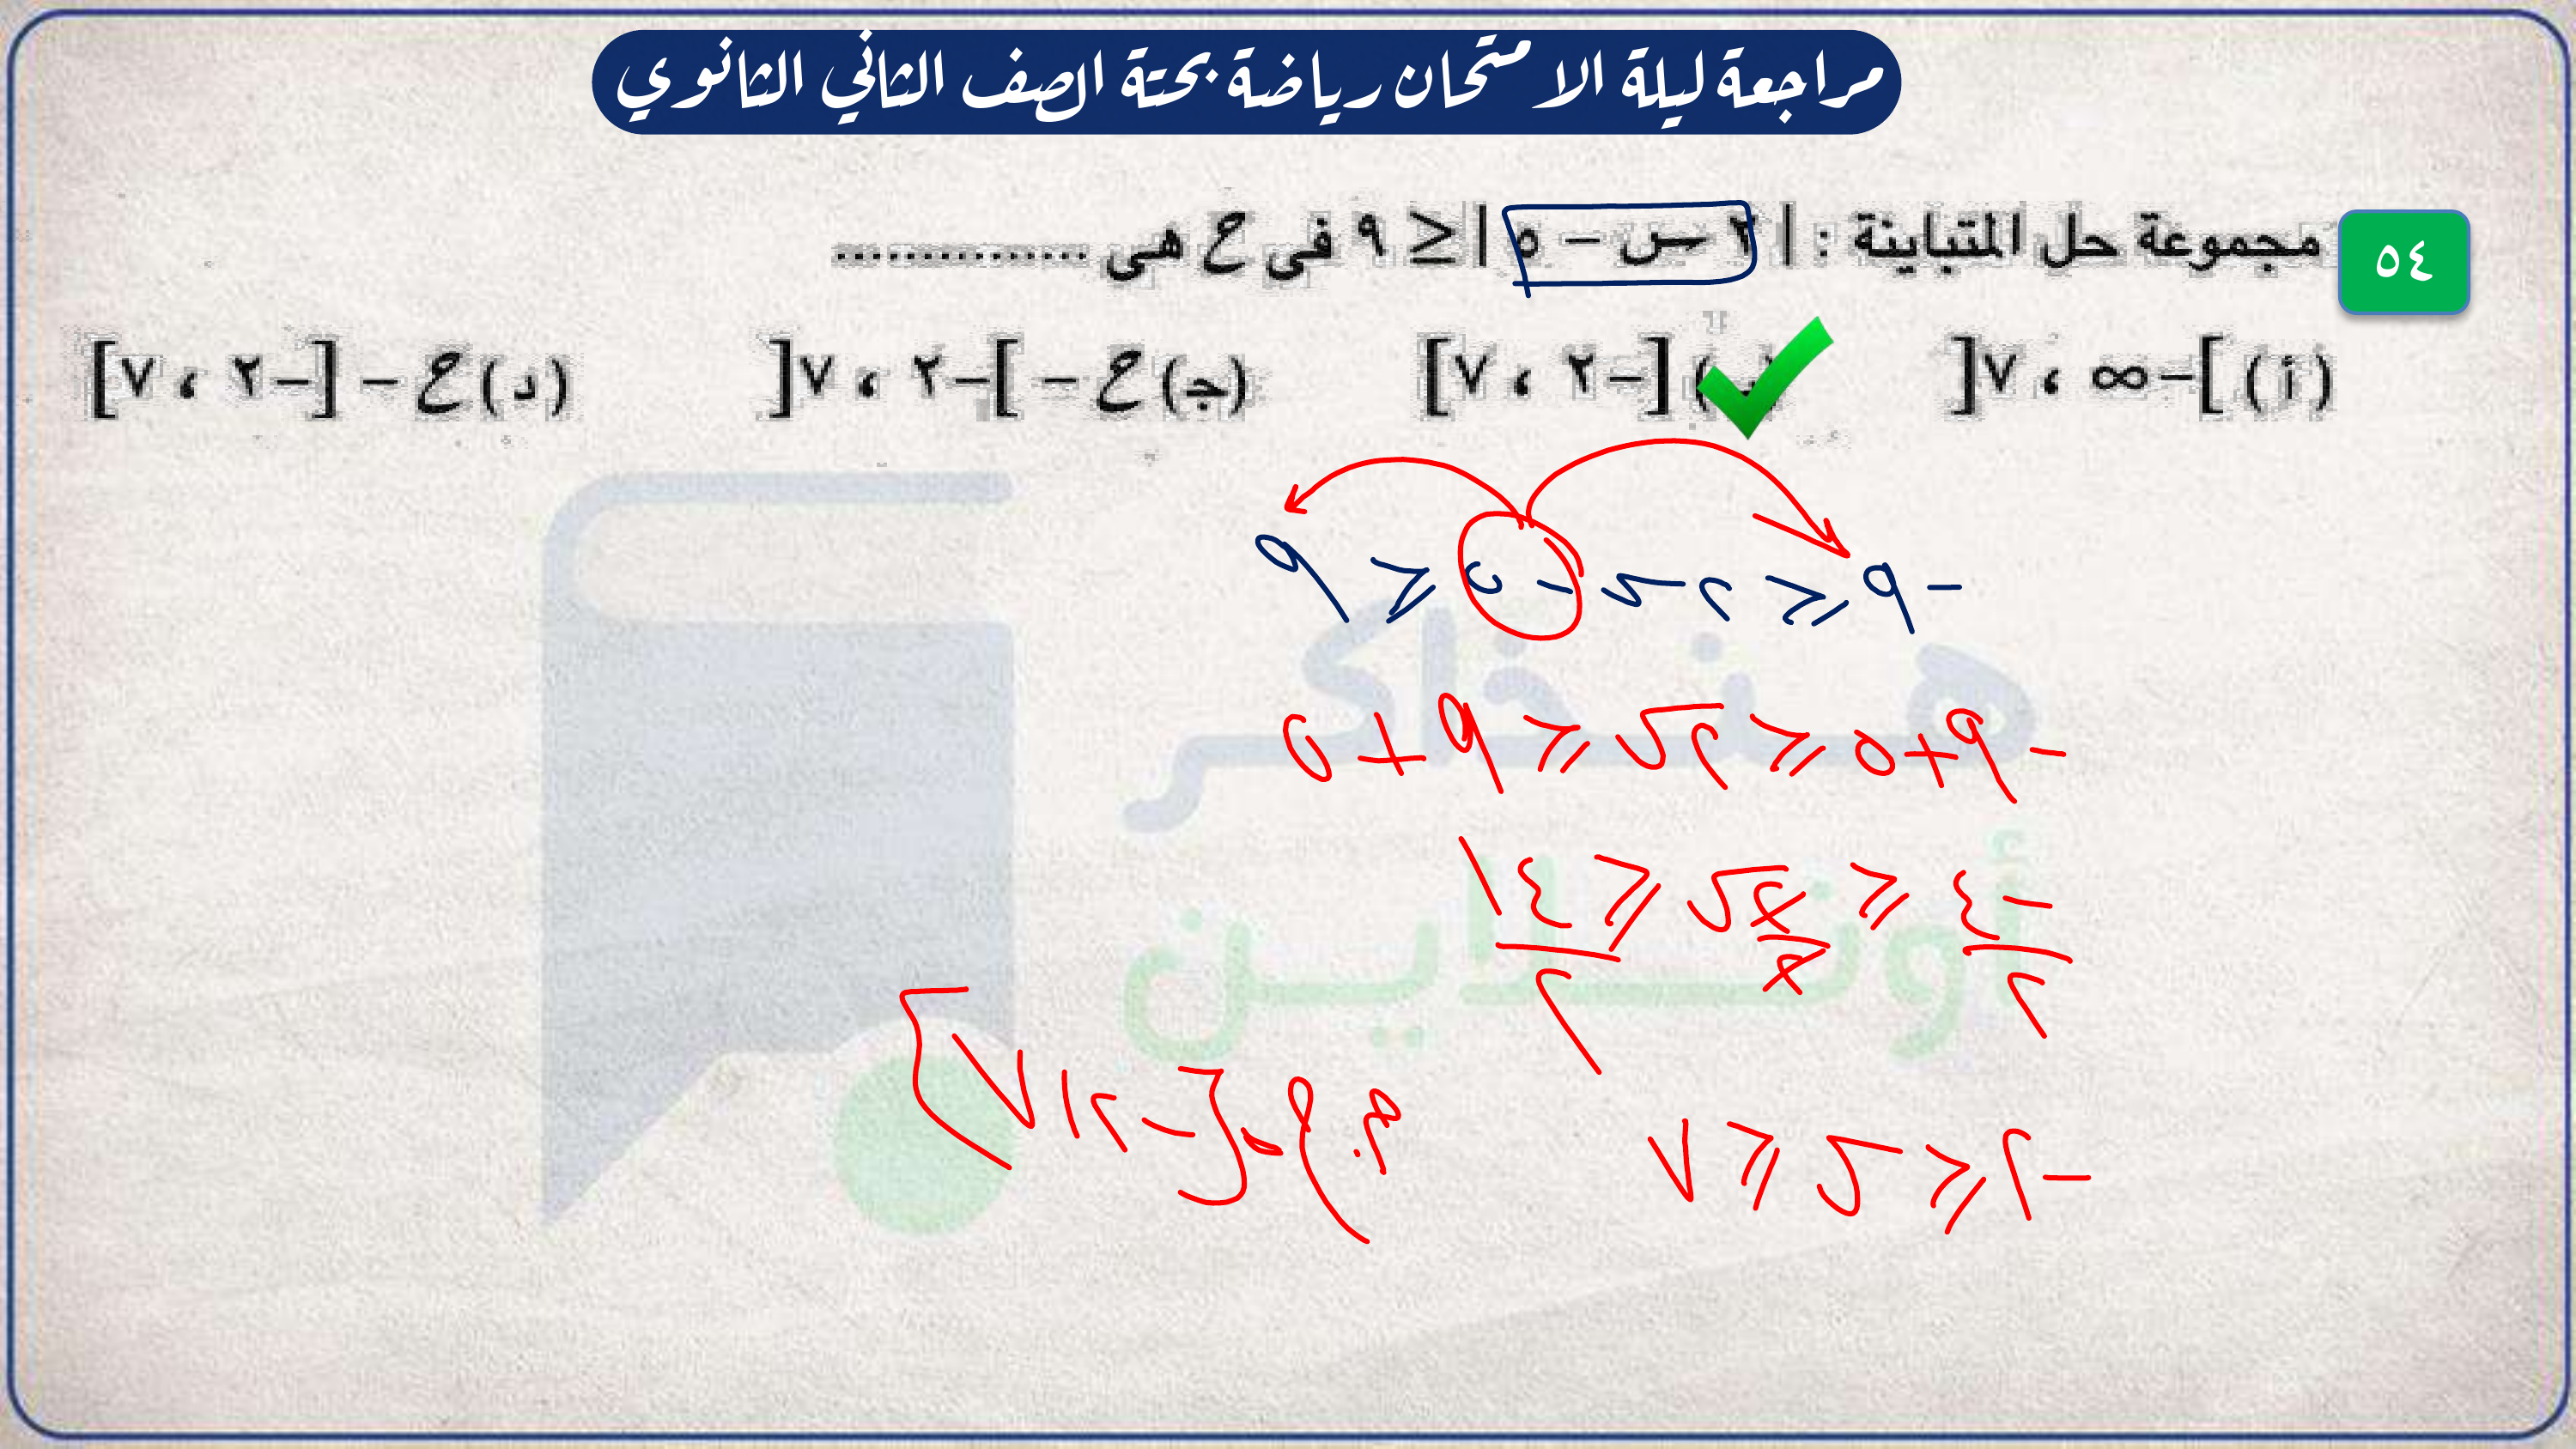 مراجعة ليلة الامتحان رياضة بحتة الصف الثاني الثانوي
٥٤ مجموعة حل المتباينة : | ٢ س – ٥ | ≤ ٩ فى ح هى ..............
(أ) ]–∞ ، ٧[ [–٢ ، ٧] (جـ) ح – ]–٢ ، ٧[ (د) ح – [–٢ ، ٧]
– ٩ ≤ ٢ س – ٥ ≤ ٩
– ٩ + ٥ ≤ ٢ س ≤ ٩ + ٥
–٤/٢ ≤ ٢س/٢ ≤ ١٤/٢
–٢ ≤ س ≤ ٧
م.ح = [–٢ ، ٧]
هنذاكر
أونلاين